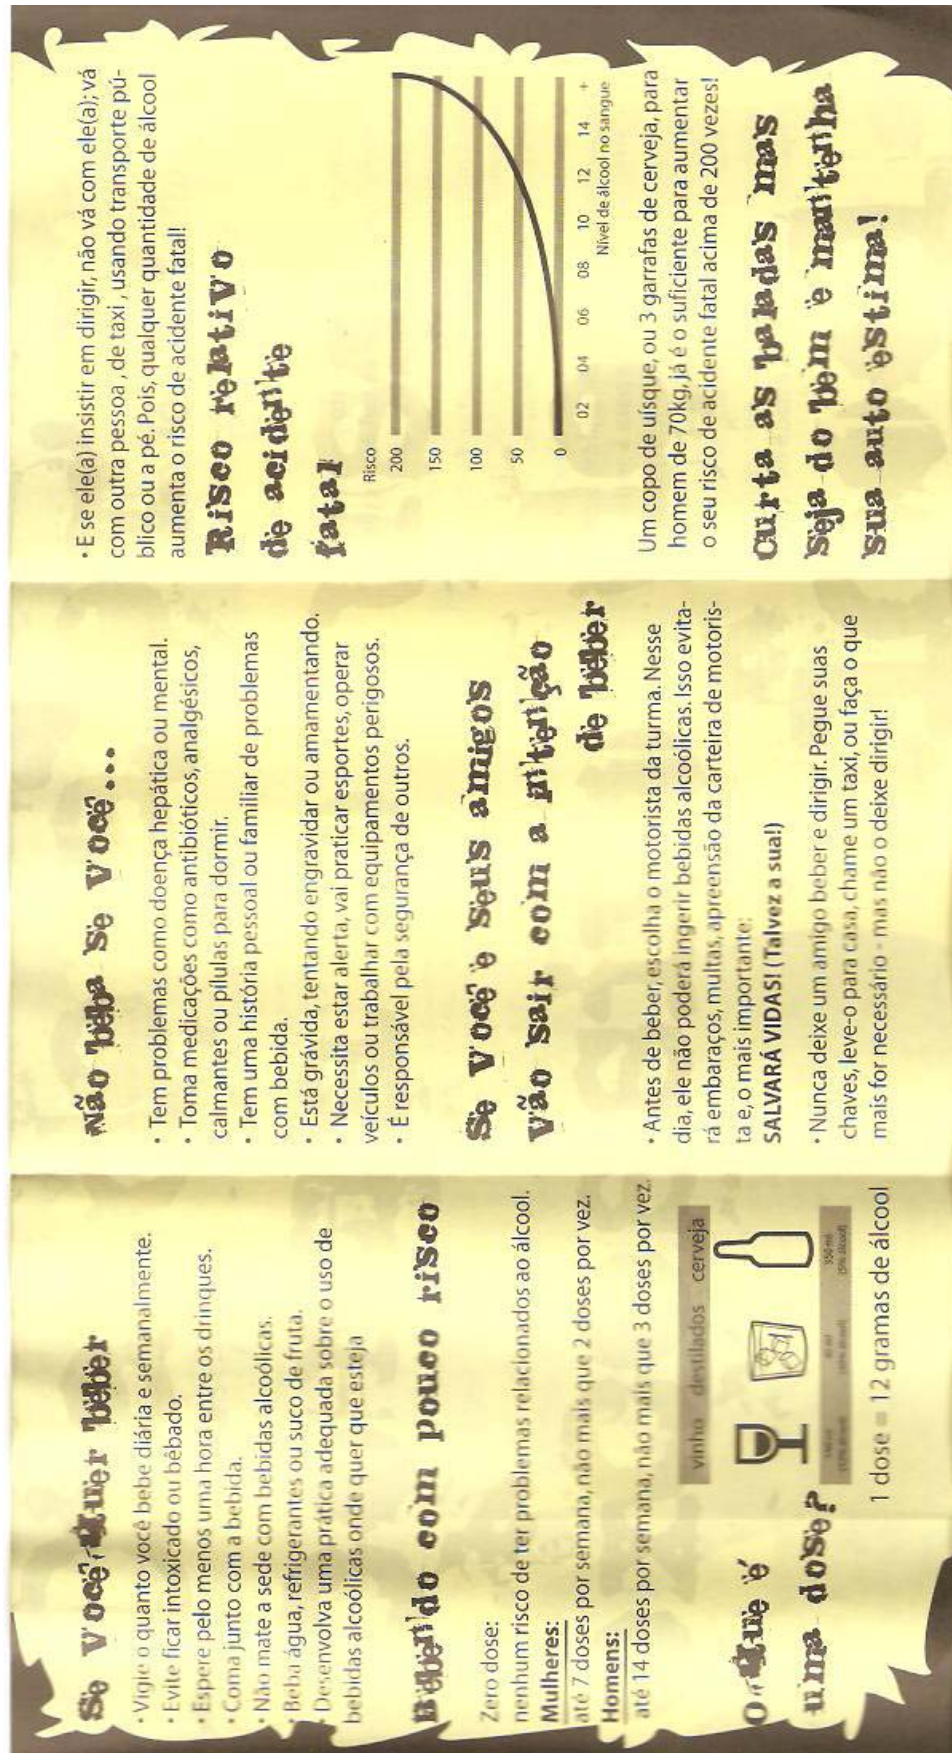 Se você quer beber
· Vigie o quanto você bebe diária e semanalmente.
· Evite ficar intoxicado ou bêbado.
· Espere pelo menos uma hora entre os drinques.
· Coma junto com a bebida.
· Não mate a sede com bebidas alcoólicas.
· Beba água, refrigerantes ou suco de fruta.
· Desenvolva uma prática adequada sobre o uso de
bebidas alcoólicas onde quer que esteja
Bebendo com pouco risco
Zero dose:
nenhum risco de ter problemas relacionados ao álcool.
Mulheres:
até 7 doses por semana, não mais que 2 doses por vez.
Homens:
até 14 doses por semana, não mais que 3 doses por vez.
O que é
uma dose?
vinho destilados cerveja
350 ml
(5% álcool)
1 dose = 12 gramas de álcool
Não beba se você...
· Tem problemas como doença hepática ou mental.
· Toma medicações como antibióticos, analgésicos,
calmantes ou pílulas para dormir.
· Tem uma história pessoal ou familiar de problemas
com bebida.
· Está grávida, tentando engravidar ou amamentando.
· Necessita estar alerta, vai praticar esportes, operar
veículos ou trabalhar com equipamentos perigosos.
· É responsável pela segurança de outros.
Se você e seus amigos
vão sair com a intenção
de beber
· Antes de beber, escolha o motorista da turma. Nesse
dia, ele não poderá ingerir bebidas alcoólicas. Isso evita-
rá embaraços, multas, apreensão da carteira de motoris-
ta e, o mais importante:
SALVARÁ VIDAS! (Talvez a sua!)
· Nunca deixe um amigo beber e dirigir. Pegue suas
chaves, leve-o para casa, chame um taxi, ou faça o que
mais for necessário - mas não o deixe dirigir!
· E se ele(a) insistir em dirigir, não vá com ele(a); vá
com outra pessoa , de taxi , usando transporte pú-
blico ou a pé. Pois, qualquer quantidade de álcool
aumenta o risco de acidente fatal!
Risco relativo
de acidente
fatal
Risco
200
150
100
50
0
02 04 06 08 10 12 14 +
Nível de álcool no sangue
Um copo de uísque, ou 3 garrafas de cerveja, para
homem de 70kg, já é o suficiente para aumentar
o seu risco de acidente fatal acima de 200 vezes!
Curta as baladas mas
seja do bem e mantenha
sua auto estima!